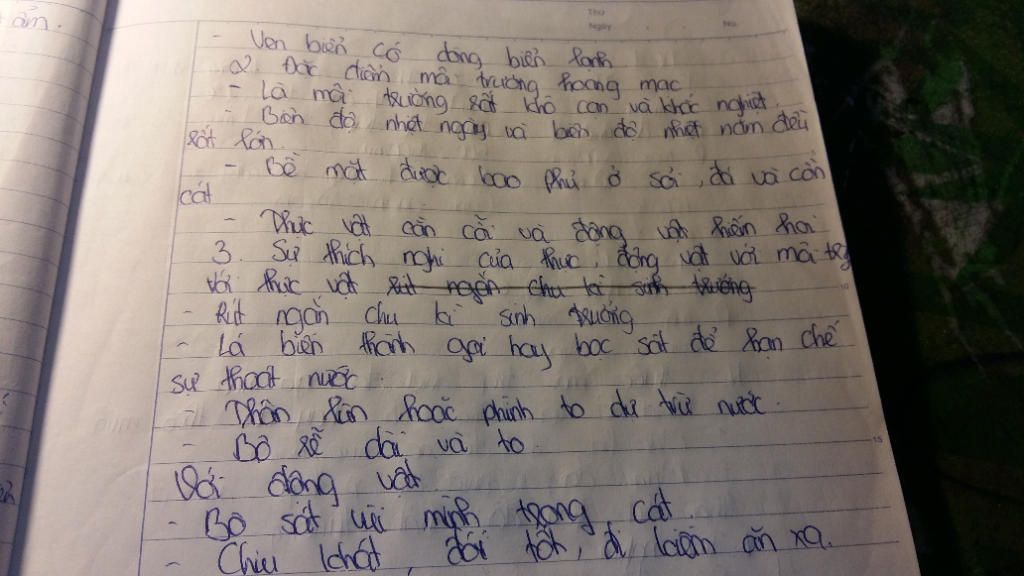 ẩm.
Thứ
Ngày No.
- Ven biển có dòng biển lạnh
2. Đặc điểm môi trường hoang mạc
- Là môi trường rất khô cạn và khắc nghiệt.
- Biên độ nhiệt ngày và biên độ nhiệt năm đều
rất lớn.
- Bề mặt được bao phủ ở sỏi, đá và cồn
cát
- Thực vật cằn cỗi và động vật hiếm hoi
3. Sự thích nghi của thực, động vật với môi trg
Với thực vật rút ngắn chu kì sinh trưởng
10
- Rút ngắn chu kì sinh trưởng
- Lá biến thành gai hay bọc sát để hạn chế
sự thoát nước.
- Thân lùn hoặc phình to dự trữ nước.
- Bộ rễ dài và to.
15
Với động vật
- Bò sát vùi mình trong cát.
- Chịu khát, đói tốt, đi kiếm ăn xa.